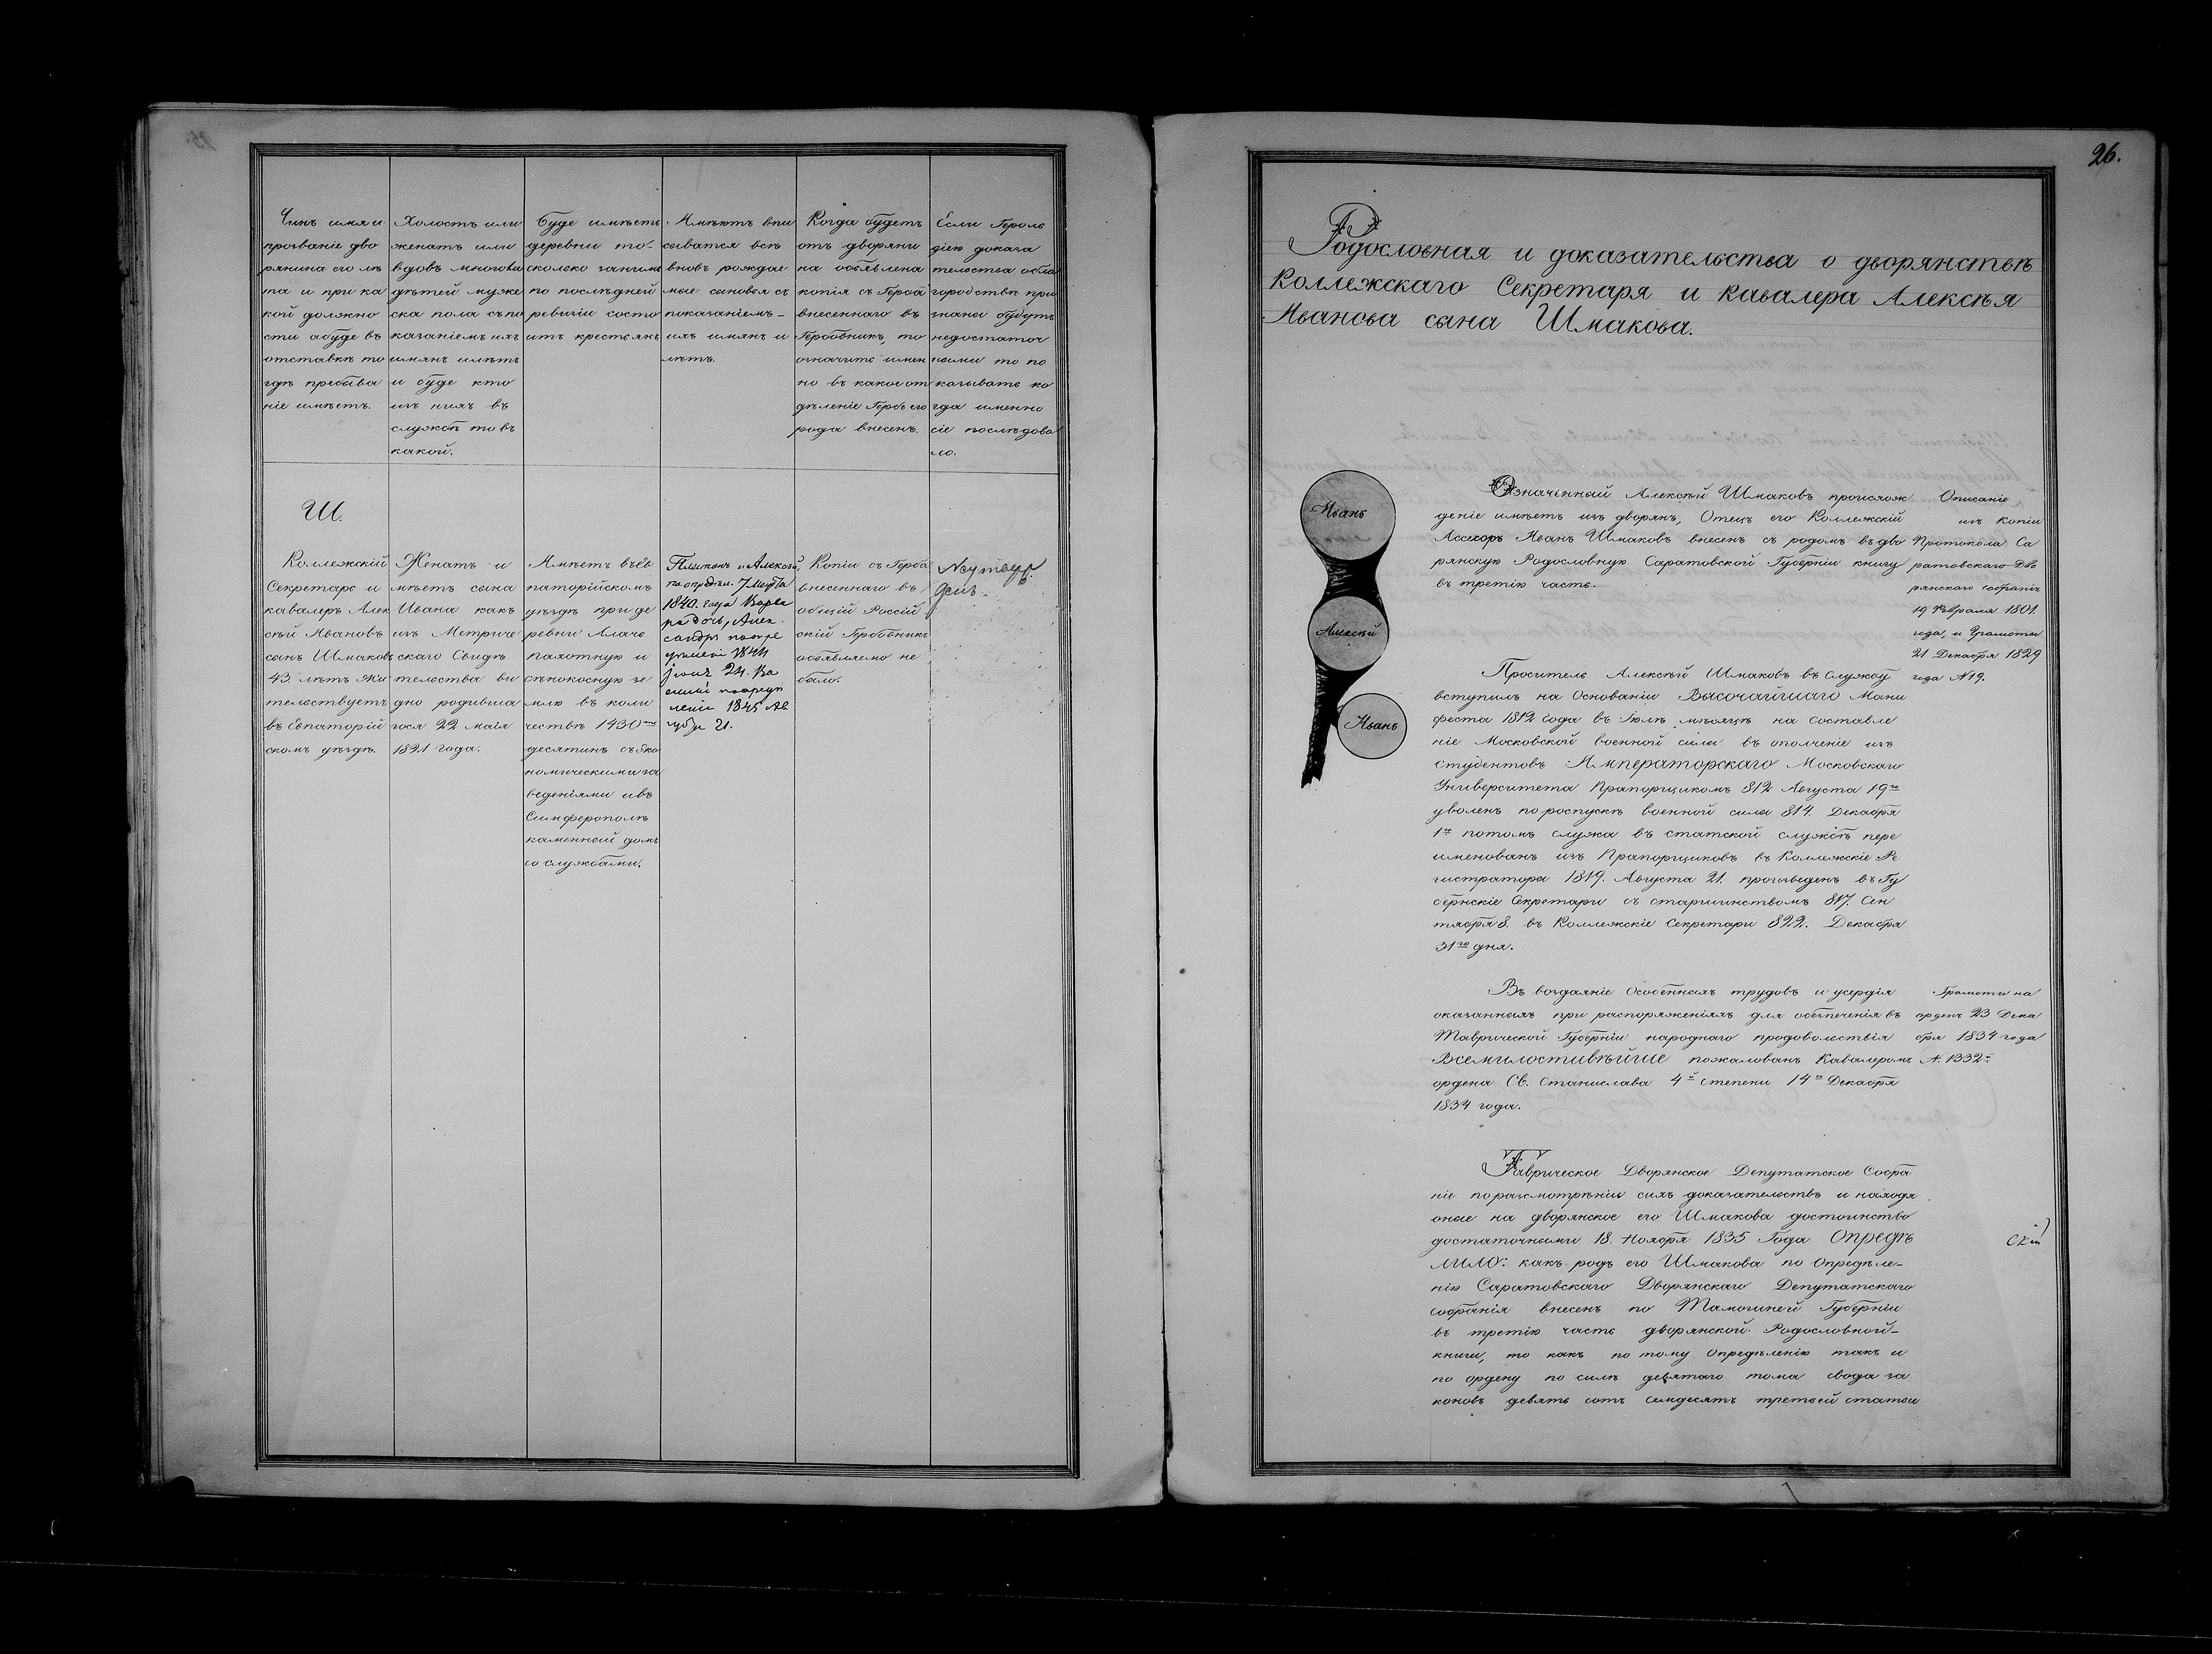 26.
Чинъ имя и
прозваніе дво
рянина его лѣ
та и при ка
кой должно
сти абуде въ
отставкѣ то
гдѣ пребыва
ніе имѣетъ.
Холостъ или
женатъ или
вдовъ многоли
дѣтей муже
ска пола съпо
казаніемъ ихъ
имянъ илѣтъ
и буде кто
изъ нихъ въ
службѣ то въ
какой.
Буде имѣетъ
деревни то-
сколько занимъ
по послѣдней
ревизіи состо
итъ крестьянъ
Имѣютъ впи
сыватся всѣ
вновь рождае
мые сыновья съ
показаніемъ-
ихъ имянъ и
лѣтъ.
Когда будетъ
отъ дворяни
на объявлена
копія съ Герба
внесеннаго въ
Гербовникъ, то
означить имен
но въ какое от
дѣленіе Гербъ его
рода внесенъ.
Если Героль
діею доказа
тельства обла
городствѣ при
знаны будутъ
недостаточ
ными то по
казывать ко
гда именно
сіе послѣдова
ло.
Ш.
Коллежскій
Секретарь и
кавалеръ Алек
сѣй Ивановъ
сынъ Шмаковъ
43. лѣтъ Жи
тельствуетъ
въ Евпаторій
скомъ уѣздѣ.
Женатъ и
мѣетъ сына
Ивана какъ
изъ Метриче
скаго Свидѣ
тельства ви
дно родивша
гося 22 маія
1821 года.
Имѣетъ въЕв
паторійскомъ
уѣздѣ при де
ревни Алачь
пахотную и
сѣнокосную зе
млю въ коли
чествѣ 1430
десятинъ съЭко
номическими за
веденіями ивъ
Симферополѣ
каменный домъ
со службами.
Платонъ и Алексѣй,
по опредѣл. 7 Марта
1840. года Варва
ра дочь, Алек
сандръ поопре
дѣленію 1844
24. Ва
силій поопредѣ
ленію 1845
21.
Копіи съ Герба
внесеннаго въ
общій Россій
скій Гербовникъ
объявляемо не
было.
Родословная и доказательства о дворянствѣ
Коллежскаго Секретаря и Кавалера Алексѣя
Иванова сына Шмакова.
Иванъ
Алексѣй
Иванъ
Означенный Алексѣй Шмаковъ происхож
деніе имѣетъ изъ дворянъ, Отецъ его Коллежскій
Ассесоръ Иванъ Шмаковъ внесенъ съ родомъ въ дво
рянскую Родословную Саратовской Губерніи книгу
въ третію часть.
Описаніе
изъ Копіи
Протокола Са
ратовскаго Дво
рянскаго собранія
19 Февраля 1801.
года, и Грамоты
21 Декабря 1829
года №19.
Проситель Алексѣй Шмаковъ въ Службу
вступилъ на Основаніи Высочайшаго Мани
феста 1812 Года въ Іюлѣ мѣсяцѣ на Составле
ніе Московской военной силы въ ополченіе изъ
Студентовъ Императорскаго Московскаго
Университета Прапорщикомъ 812 Августа 19го
уволенъ по роспускѣ военной силы 814. Декабря
1го потомъ служа въ статской службѣ пере
именованъ изъ Прапорщиковъ въ Коллежскіе Ре
гистраторы 1819. Августа 21. произведенъ въ Гу
бернскіе Секретари съ старшинствомъ 817. Сен
тября 8. въ Коллежскіе Секретари 822. Декабря
31го дня.
Въ воздаяніе Особенныхъ трудовъ и усердія
оказанныхъ при распоряженіяхъ для обезпеченія въ
Таврической Губерніи народнаго продовольствія
Всемилостивѣйше пожалованъ Кавалеромъ
ордена Св. Станислава 4й степени 14го Декабря
1834 года.
Грамоты на
орденъ 23 Дека
бря 1834 года
№. 1332.
Таврическое Дворянское Депутатское Собра
ніе поразсмотрѣніи сихъ доказательствъ и находя
оные на дворянское его Шмакова достоинство
достаточными 18. Ноября 1835 Года Опредѣ
лило: какъ родъ его Шмакова по Опредѣле-
нію Саратовскаго Дворянскаго Депутатскаго
собранія внесенъ по Тамошней Губерніи
въ третію часть дворянской Родословной-
книги, то какъ по тому Опредѣленію такъ и
по ордену по силѣ девятаго тома свода за
коновъ девять сотъ семдесятъ третьей статьи
скій